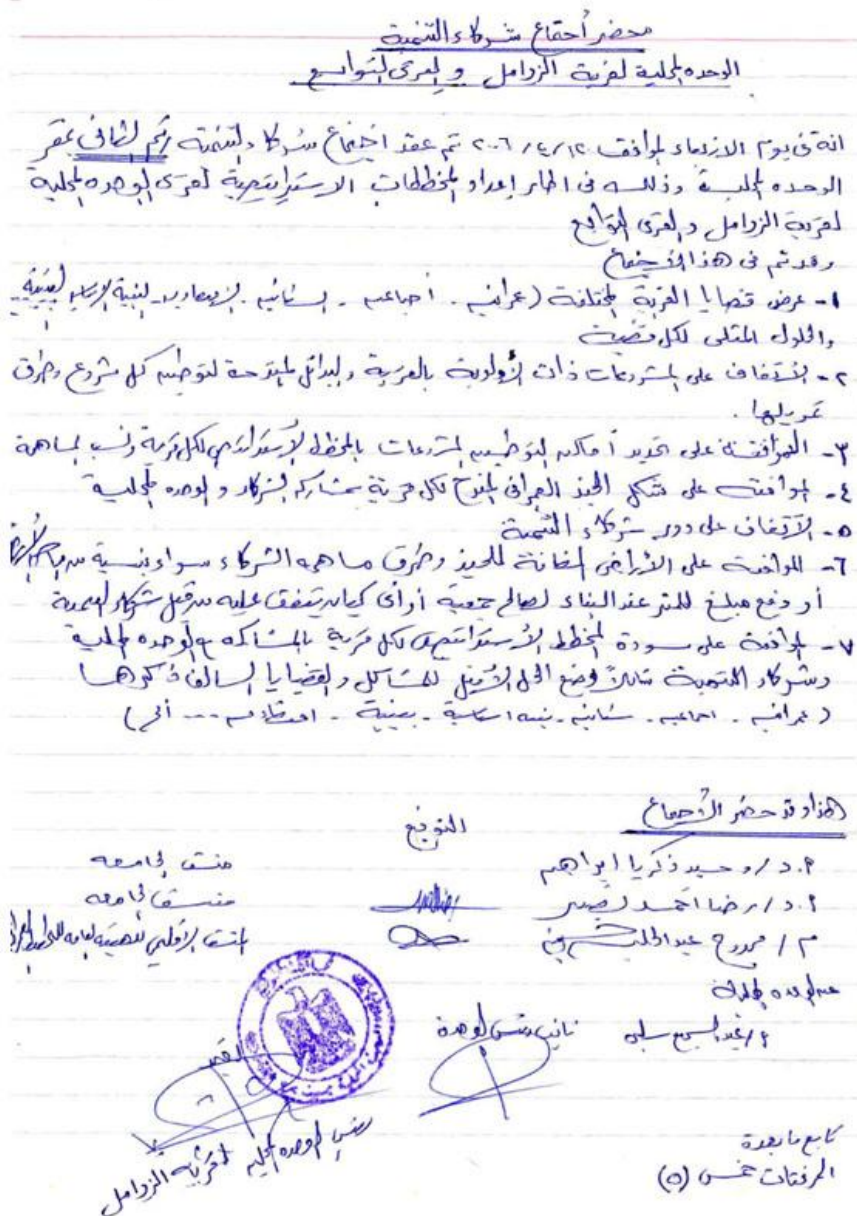 محضر أجتماع شركاء التنمية
الوحده المحلية لقرية الزوامل والقرى التوابع
انة فى يوم الاربعاء الموافق ١٢/٤/٢٠٠٦ تم عقد اجتماع شركاء التنمية رقم الثانى بمقر
الوحده المحلية وذلك فى اطار إعداد المخططات الاستراتيجية لقرى الوحده المحلية
لقرية الزوامل والقرى التوابع
وقد تم فى هذا الأجتماع
١- عرض قضايا القرية المختلفة (عمرانيه - أجتماعيه - سكانيه - إقتصاديه - البنية الاساسية البيئية
والحلول المثلى لكل قضية
٢- الأتفاق على المشروعات ذات الأولوية بالقرية والبدائل المقترحة لتوطين كل مشروع وطرق
تمويلها .
٣- الموافقة على تحديد أماكن التوطين للمشروعات بالمخطط الأستراتيجى لكل قرية ونسب المساهمة
٤- الموافقه على شكل الحيز العمرانى المقترح لكل قرية بمشاركة الشركاء والوحده المحلية
٥- الآتفاق على دور شركاء التنمية
٦- الموافقة على الأراضى المضافة للحيز وطرق مساهمه الشركاء سواء بنسبة من
أو دفع مبلغ للمتر عند البناء لصالح جمعية أو أى كيان يتفق عليه من قبل شركاء التنمية
٧- الموافقة على مسودة المخطط الأستراتيجى لكل قرية بالمشاركه مع الوحده المحلية
وشركاء التنمية شاملاً وضع الحل الأمثل للمشاكل والقضايا السالف ذكرها
(عمرانيه - اجتماعيه - سكانيه - بنيه اساسية - بيئية - اقتصاديه --- ألخ)
هذا وقد حضر الأجتماع
التوقيع
أ.د/ وحيد زكريا ابراهيم منسق الجامعه
أ.د/ رضا احمد منسق الجامعه
م/ ممدوح عبد الحليم المنسق الأقليمى للهيئه العامه للتخطيط العمرانى
عن الوحده المحلية
أ/ عبد السميع نائب رئيس الوحدة
رئيس الوحده المحليه لقرية الزوامل
تابع ما بعدة
المرفقات خمس (٥)